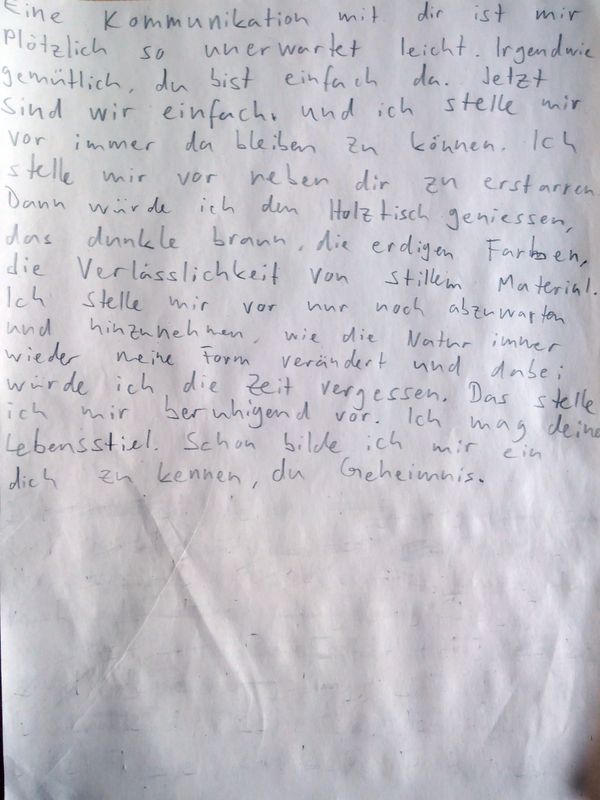 Eine Kommunikation mit dir ist mir
Plötzlich so unerwartet leicht. Irgendwie
gemütlich, du bist einfach da. Jetzt
sind wir einfach. und ich stelle mir
vor immer da bleiben zu können. Ich
stelle mir vor neben dir zu erstarren.
Dann würde ich den Holztisch geniessen,
das dunkle braun, die erdigen Farben,
die Verlässlichkeit von stillem Material.
Ich stelle mir vor nur noch abzuwarten
und hinzunehmen, wie die Natur immer
wieder meine Form verändert und dabei
würde ich die Zeit vergessen. Das stelle
ich mir beruhigend vor. Ich mag deine
Lebensstiel. Schon bilde ich mir ein
dich zu kennen, du Geheimnis.